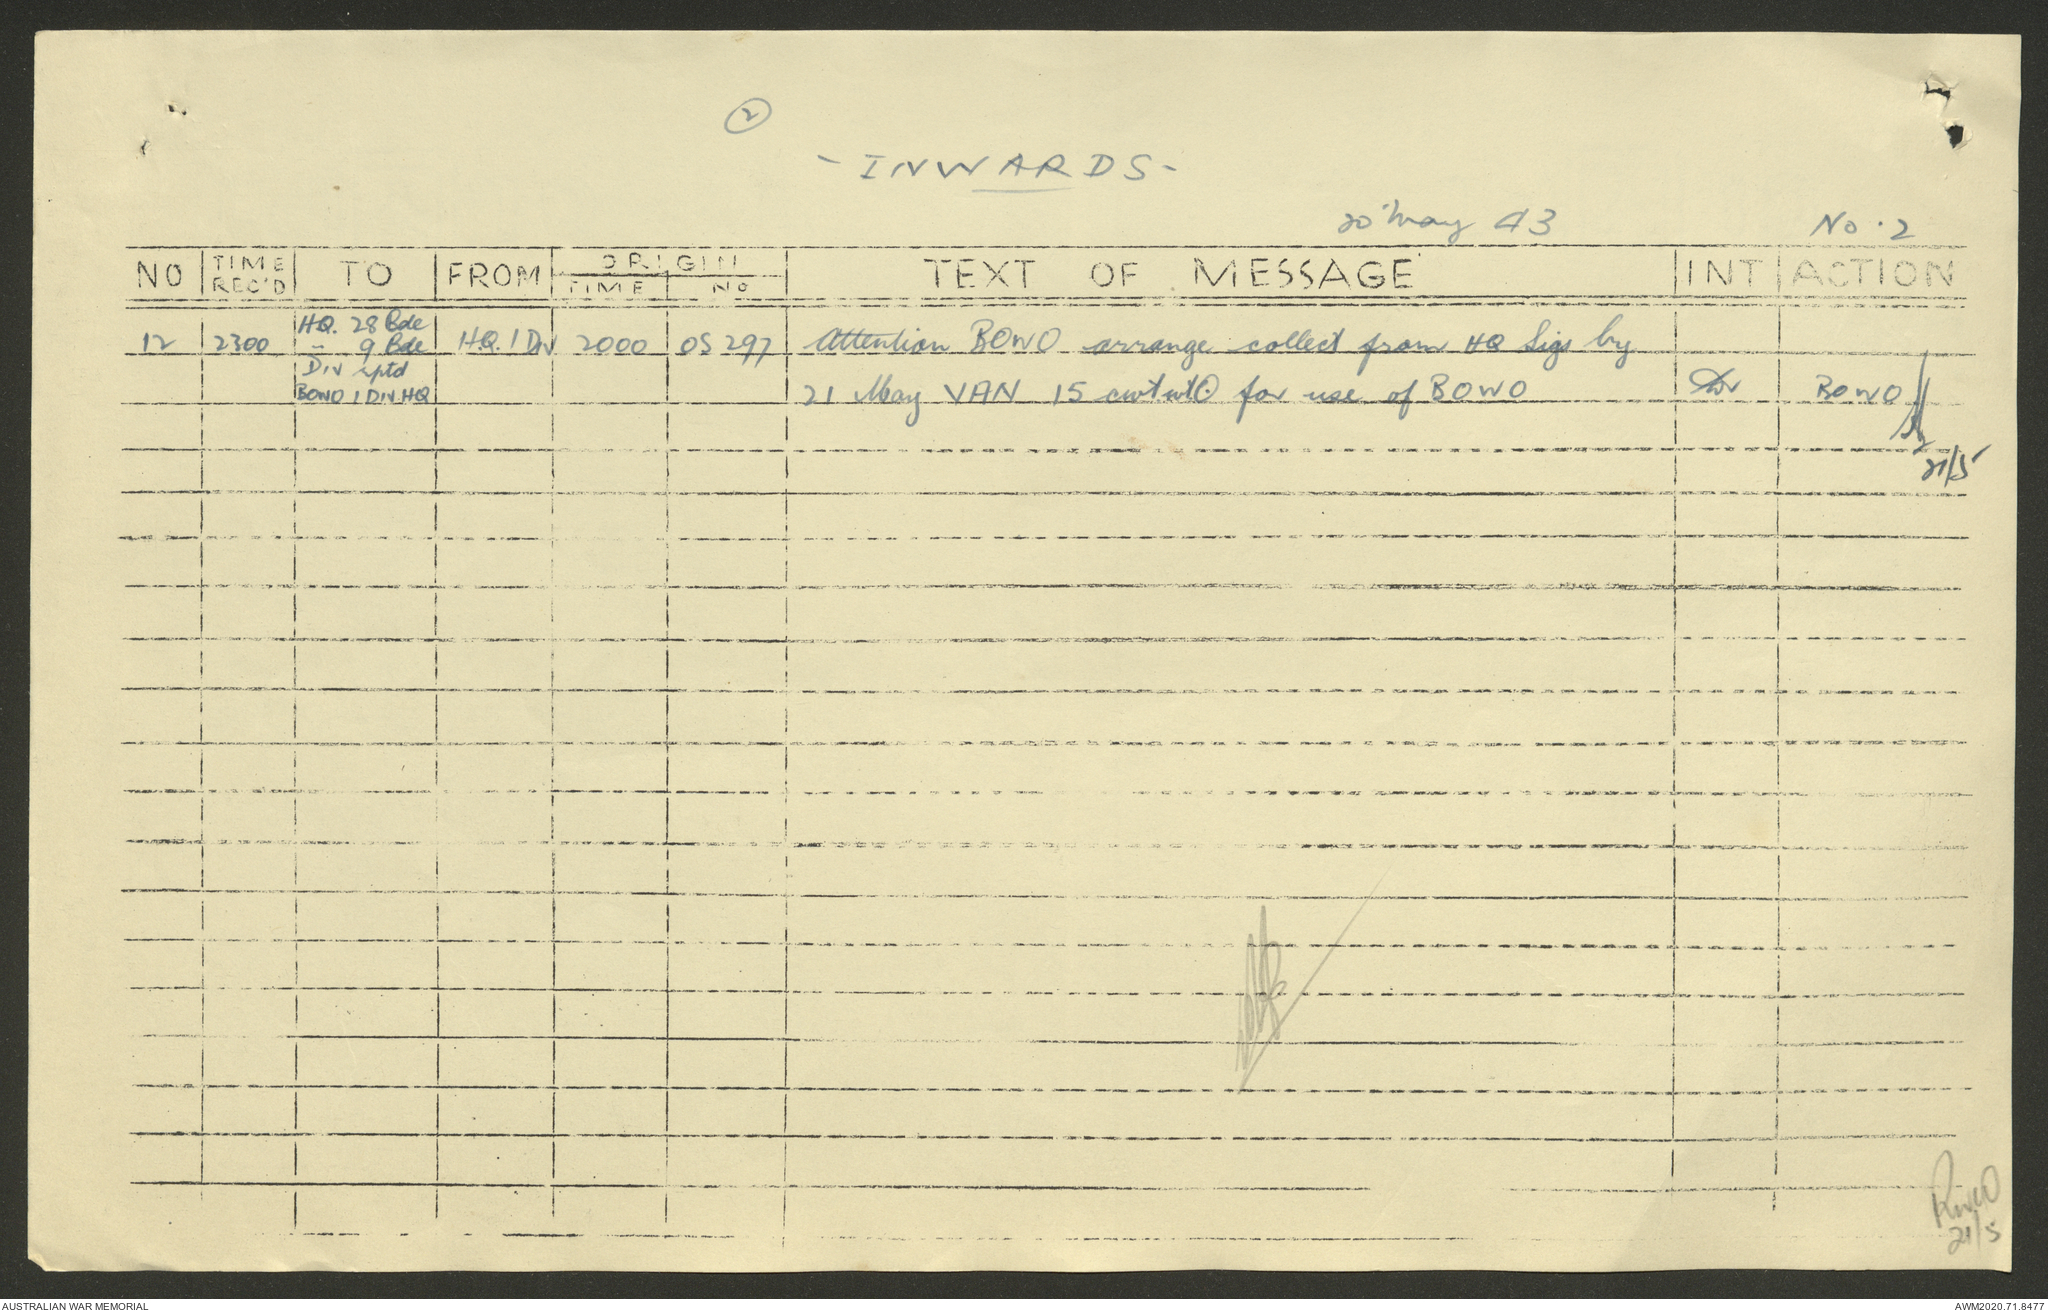 2
- INWARDS -
20 May 43 No. 2
NO TIME REC'D TO FROM ORIGIN TIME No TEXT OF MESSAGE INT ACTION
HQ. 28 Bde
12 2300 - 9 Bde H.Q. 1 Div 2000 OS 297 Attention BOWO arrange collect from HQ Sigs by
Div rptd
BOWO 1 DIV HQ 21 May VAN 15 cwt wt for use of BOWO BOWO
21/5
21/5
AUSTRALIAN WAR MEMORIAL AWM2020.71.8477